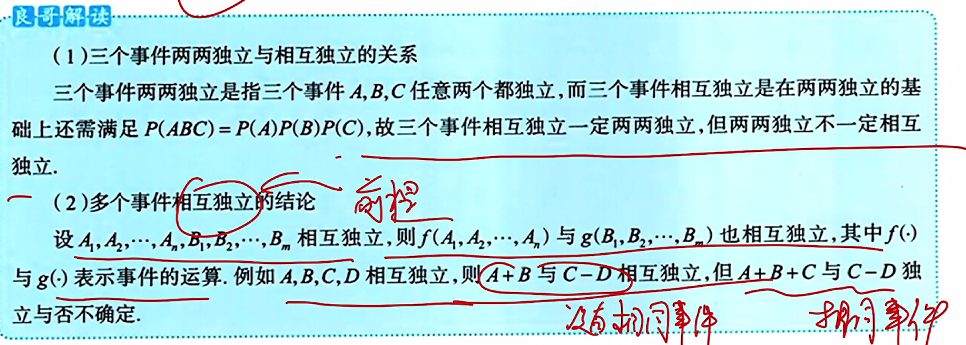 良哥解读
(1)三个事件两两独立与相互独立的关系
三个事件两两独立是指三个事件 A,B,C 任意两个都独立,而三个事件相互独立是在两两独立的基
础上还需满足 P(ABC)=P(A)P(B)P(C),故三个事件相互独立一定两两独立,但两两独立不一定相互
独立.
(2)多个事件相互独立的结论
前提
设 A₁,A₂,…,Aₙ,B₁,B₂,…,Bₘ 相互独立,则 f(A₁,A₂,…,Aₙ) 与 g(B₁,B₂,…,Bₘ) 也相互独立,其中 f(·)
与 g(·) 表示事件的运算. 例如 A,B,C,D 相互独立,则 A+B 与 C-D 相互独立,但 A+B+C 与 C-D 独
立与否不确定.
没有相同事件
相同事件